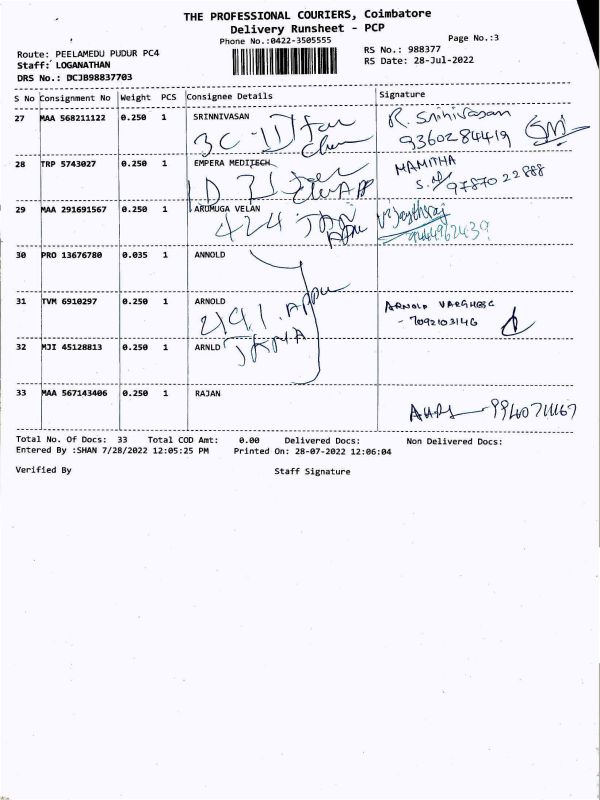 THE PROFESSIONAL COURIERS, Coimbatore
Delivery Runsheet - PCP
Phone No.:0422-3505555
Page No.:3
Route: PEELAMEDU PUDUR PC4
RS No.: 988377
Staff: LOGANATHAN
RS Date: 28-Jul-2022
DRS No.: DCJB98837703
S No Consignment No Weight PCS Consignee Details Signature
27 MAA 568211122 0.250 1 SRINNIVASAN
R. Srinivasan
9360284419
28 TRP 5743027 0.250 1 EMPERA MEDITECH
MAMITHA
9787022888
29 MAA 291691567 0.250 1 ARUMUGA VELAN
424
30 PRO 13676780 0.035 1 ANNOLD
31 TVM 6910297 0.250 1 ARNOLD
ARNOLD VARGHESE
- 7092103146
32 MJI 45128813 0.250 1 ARNLD
33 MAA 567143406 0.250 1 RAJAN
Total No. Of Docs: 33 Total COD Amt: 0.00 Delivered Docs: Non Delivered Docs:
Entered By :SHAN 7/28/2022 12:05:25 PM Printed On: 28-07-2022 12:06:04
Verified By Staff Signature